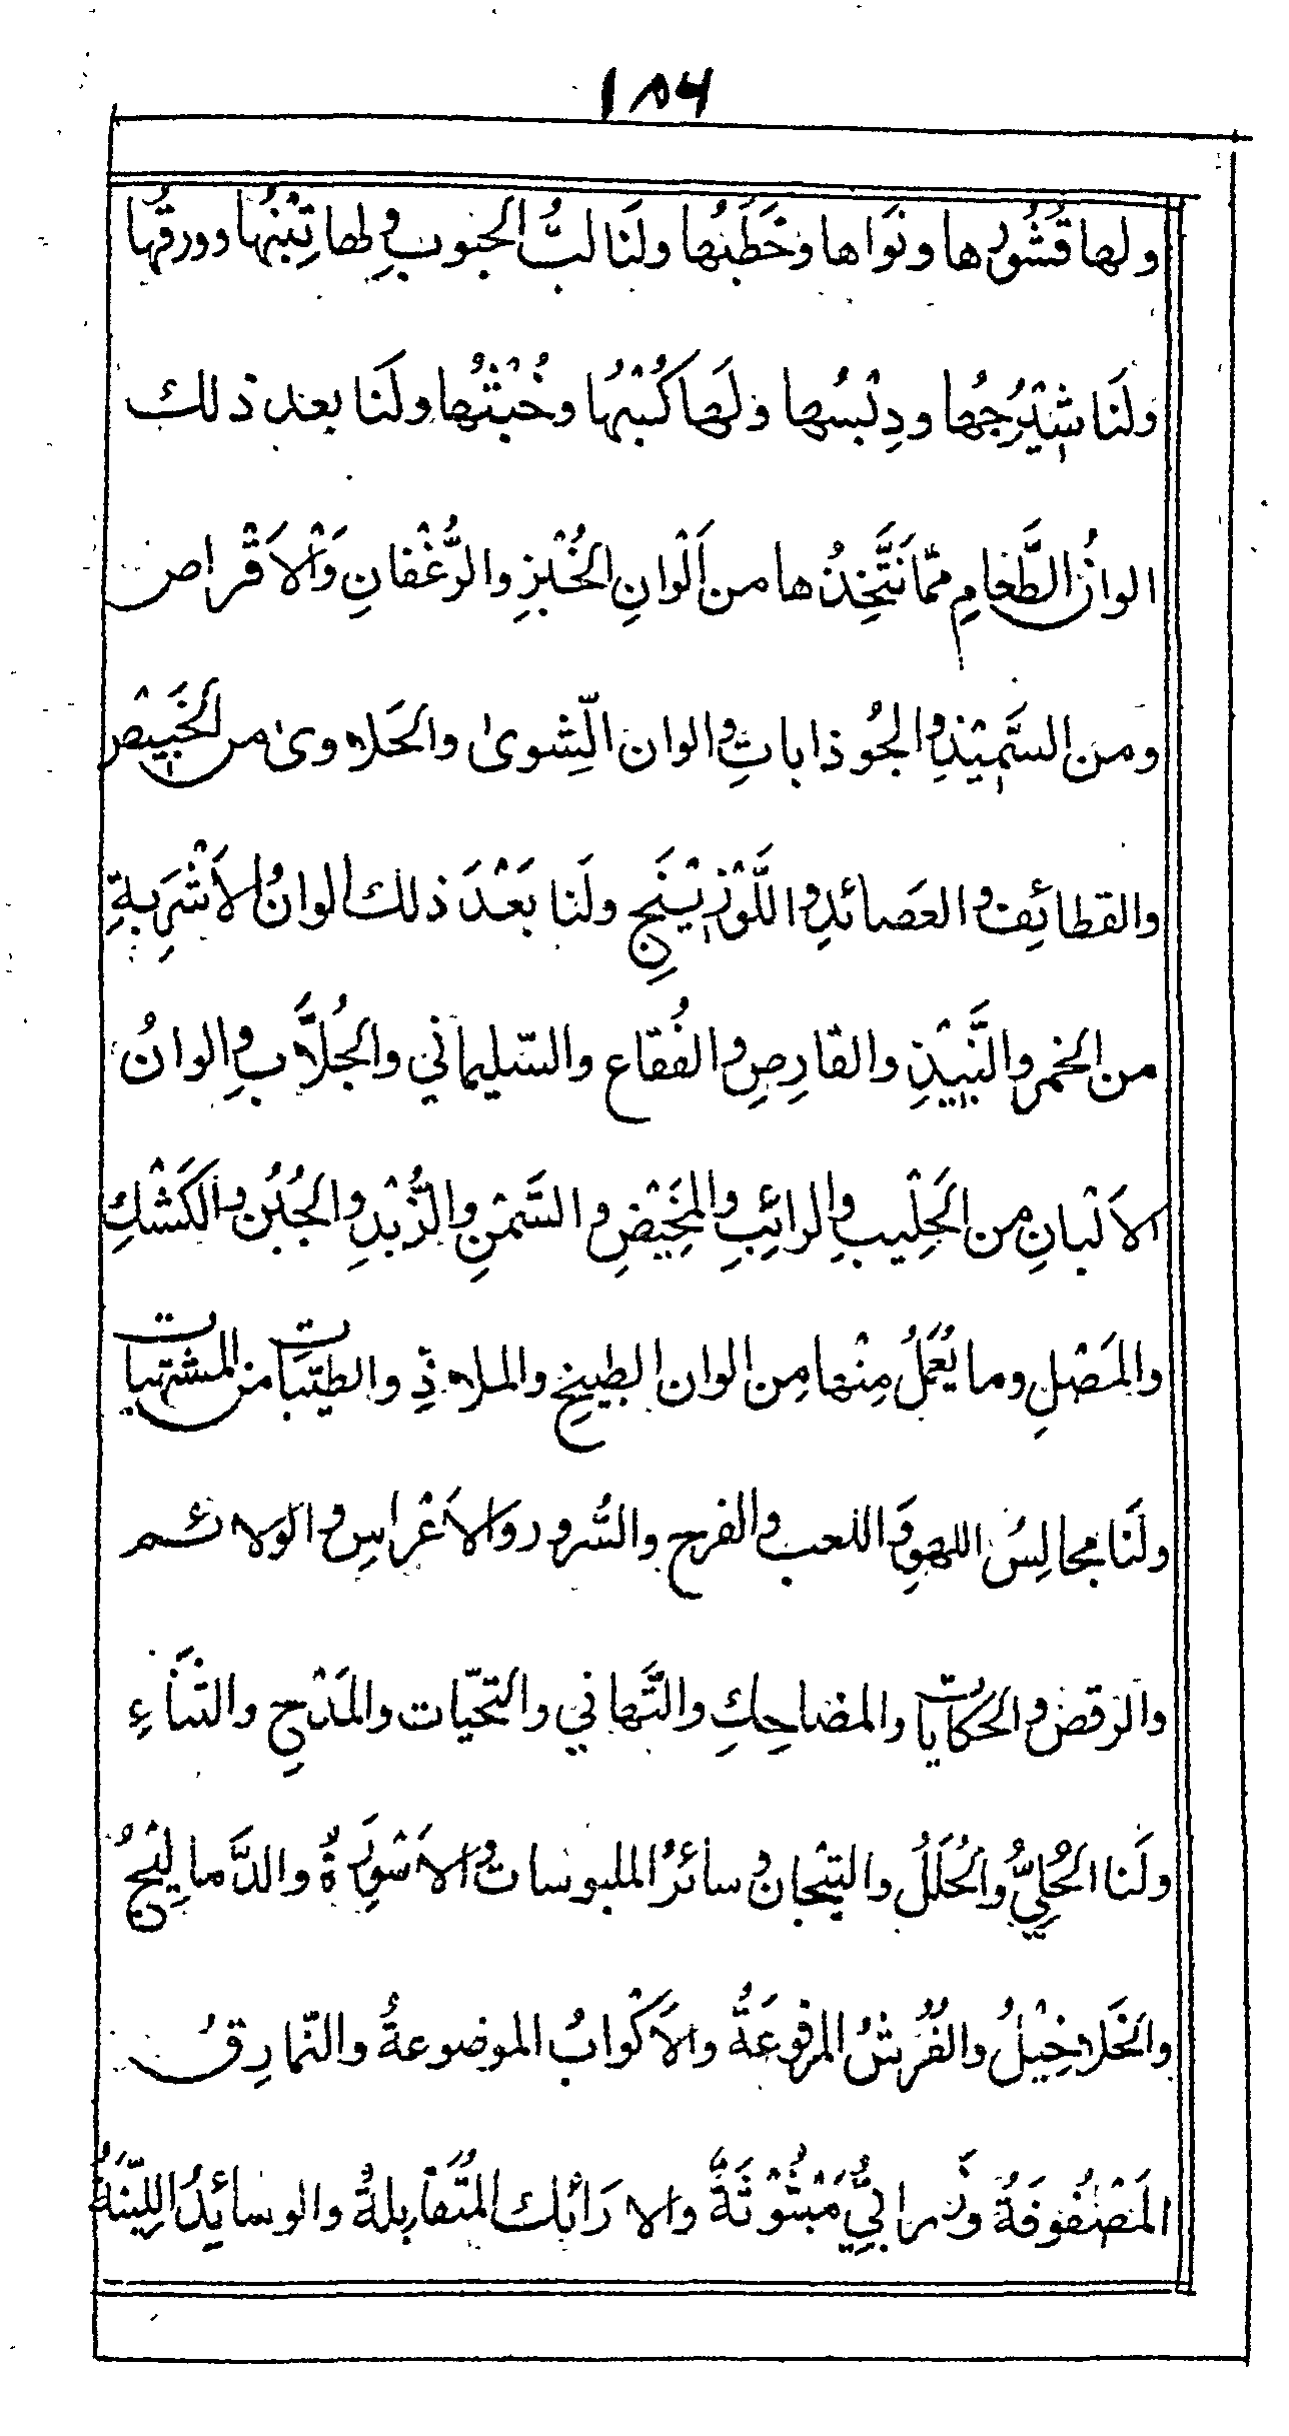 ١٨٤
ولها قُشُورها ونَوَاها وخَطَبُها ولَنا لبُّ الحبوب ولها تِبْنُها وورقُها
ولَنا شيْرَجُها ودِبْسُها ولَها كُسْبُها وخُبْثُها ولَنا بعد ذلك
الوانُ الطَّعامِ ممّا نَتَّخِذُها من اَلْوانِ الخُبْزِ والرُّغْفانِ وَالْاَقْراص
ومن السَّمِيْذِ والجُوذاباتِ والوان الشِوىٰ والحَلاوىٰ من الخَبِيْص
والقطائِف والعَصائدِ واللَّوْزِيْنَجِ ولَنا بَعْدَ ذلك الوانُ الاَشْرِبةِ
من الخمر والنَّبِيْذِ والقارِصِ والفُقاع والسّليماني والجُلاَّبِ والوانُ
الاَلْبانِ من الحَلِيْبِ والرائِبِ والمَخِيْضِ والسَّمْنِ والزُّبْدِ والجُبُن والكَشْكِ
والمَصْلِ وما يُعْمَلُ مِنْها مِن الوان الطبيخِ والملاذِّ والطيّبات من المشتهيات
ولَنا مجالِسُ اللهوِ واللعب والفرح والسُّرور والاَعْراسِ والولائم
والرقص والحكايات والمضاحِكِ والتَّهاني والتحيّات والمَدْحِ والثَناءِ
ولَنا الحُلِيُّ والحُلَلُ والتِيْجان وسائرُ الملبوسات والاَسْوِرَةُ والدَّمالِيْجُ
والخَلاخِيْلُ والفُرُشُ المرفوعَةُ والاَكْوابُ الموضوعةُ والنّمارِقُ
المَصْفُوفَةُ وَزرابيُّ مَبْثُوْثَةٌ والارَائك المُتَقابِلةُ والوسائِدُ اللِيّنَةُ